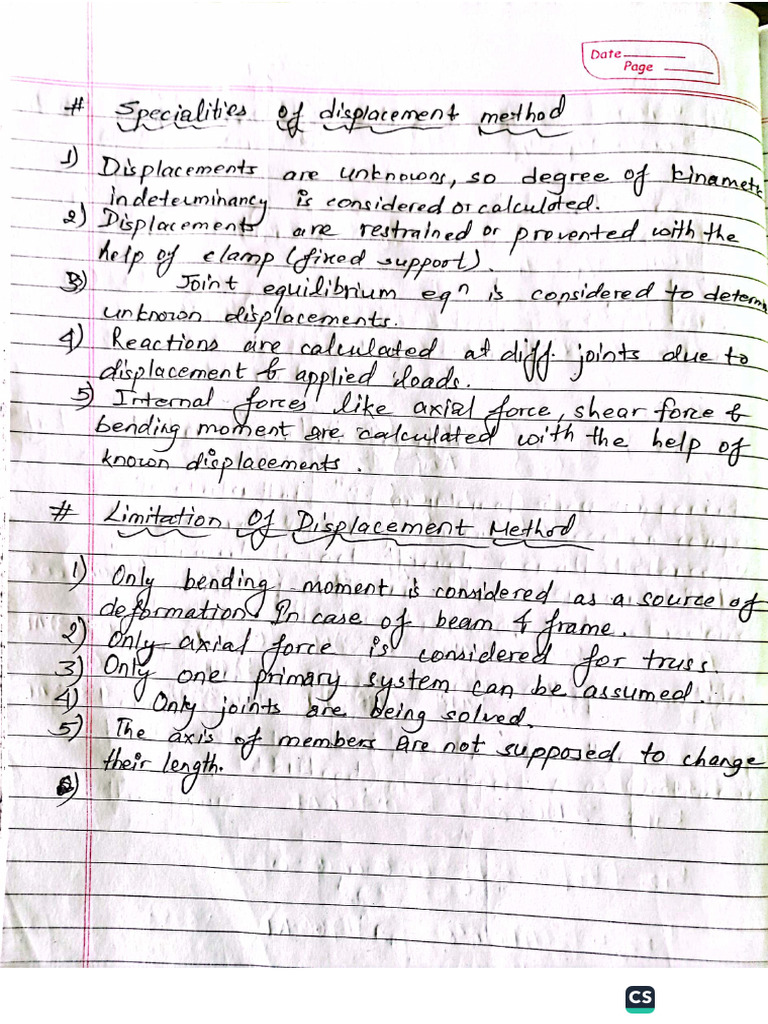 Date
Page
# Specialities of displacement method
1) Displacements are unknowns, so degree of kinamet
indeterminancy is considered or calculated.
2) Displacements are restrained or provented with the
help of clamp (fixed support).
3) Joint equilibrium eqⁿ is considered to determ
unknown displacements.
4) Reactions are calculated at diff. joints due to
displacement & applied loads.
5) Internal forces like axial force, shear force &
bending moment are calculated with the help of
known displacements.
# Limitation Of Displacement Method
1) Only bending moment is considered as a source of
deformation In case of beam & frame.
2) Only axial force is considered for truss
3) Only one primary system can be assumed.
4) Only joints are being solved.
5) The axis of members are not supposed to change
their length.
CS